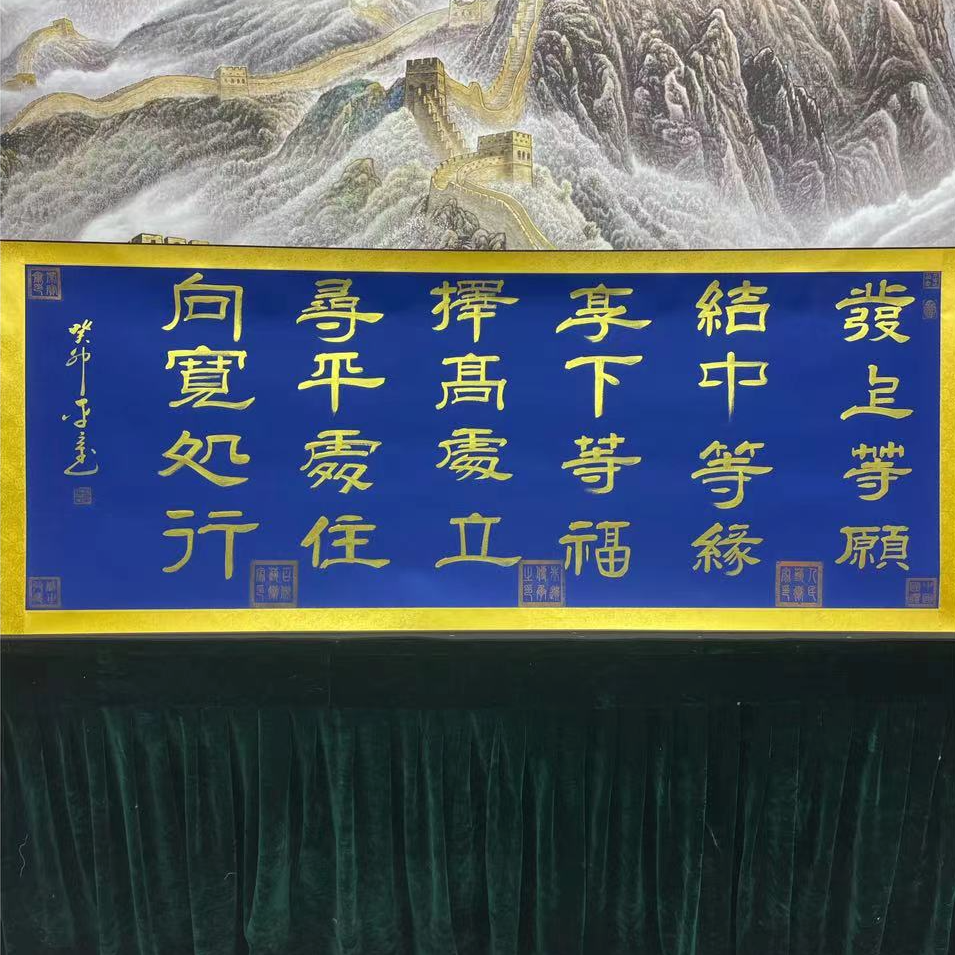 發上等願
結中等緣
享下等福
擇高處立
尋平處住
向寬処行
癸卯